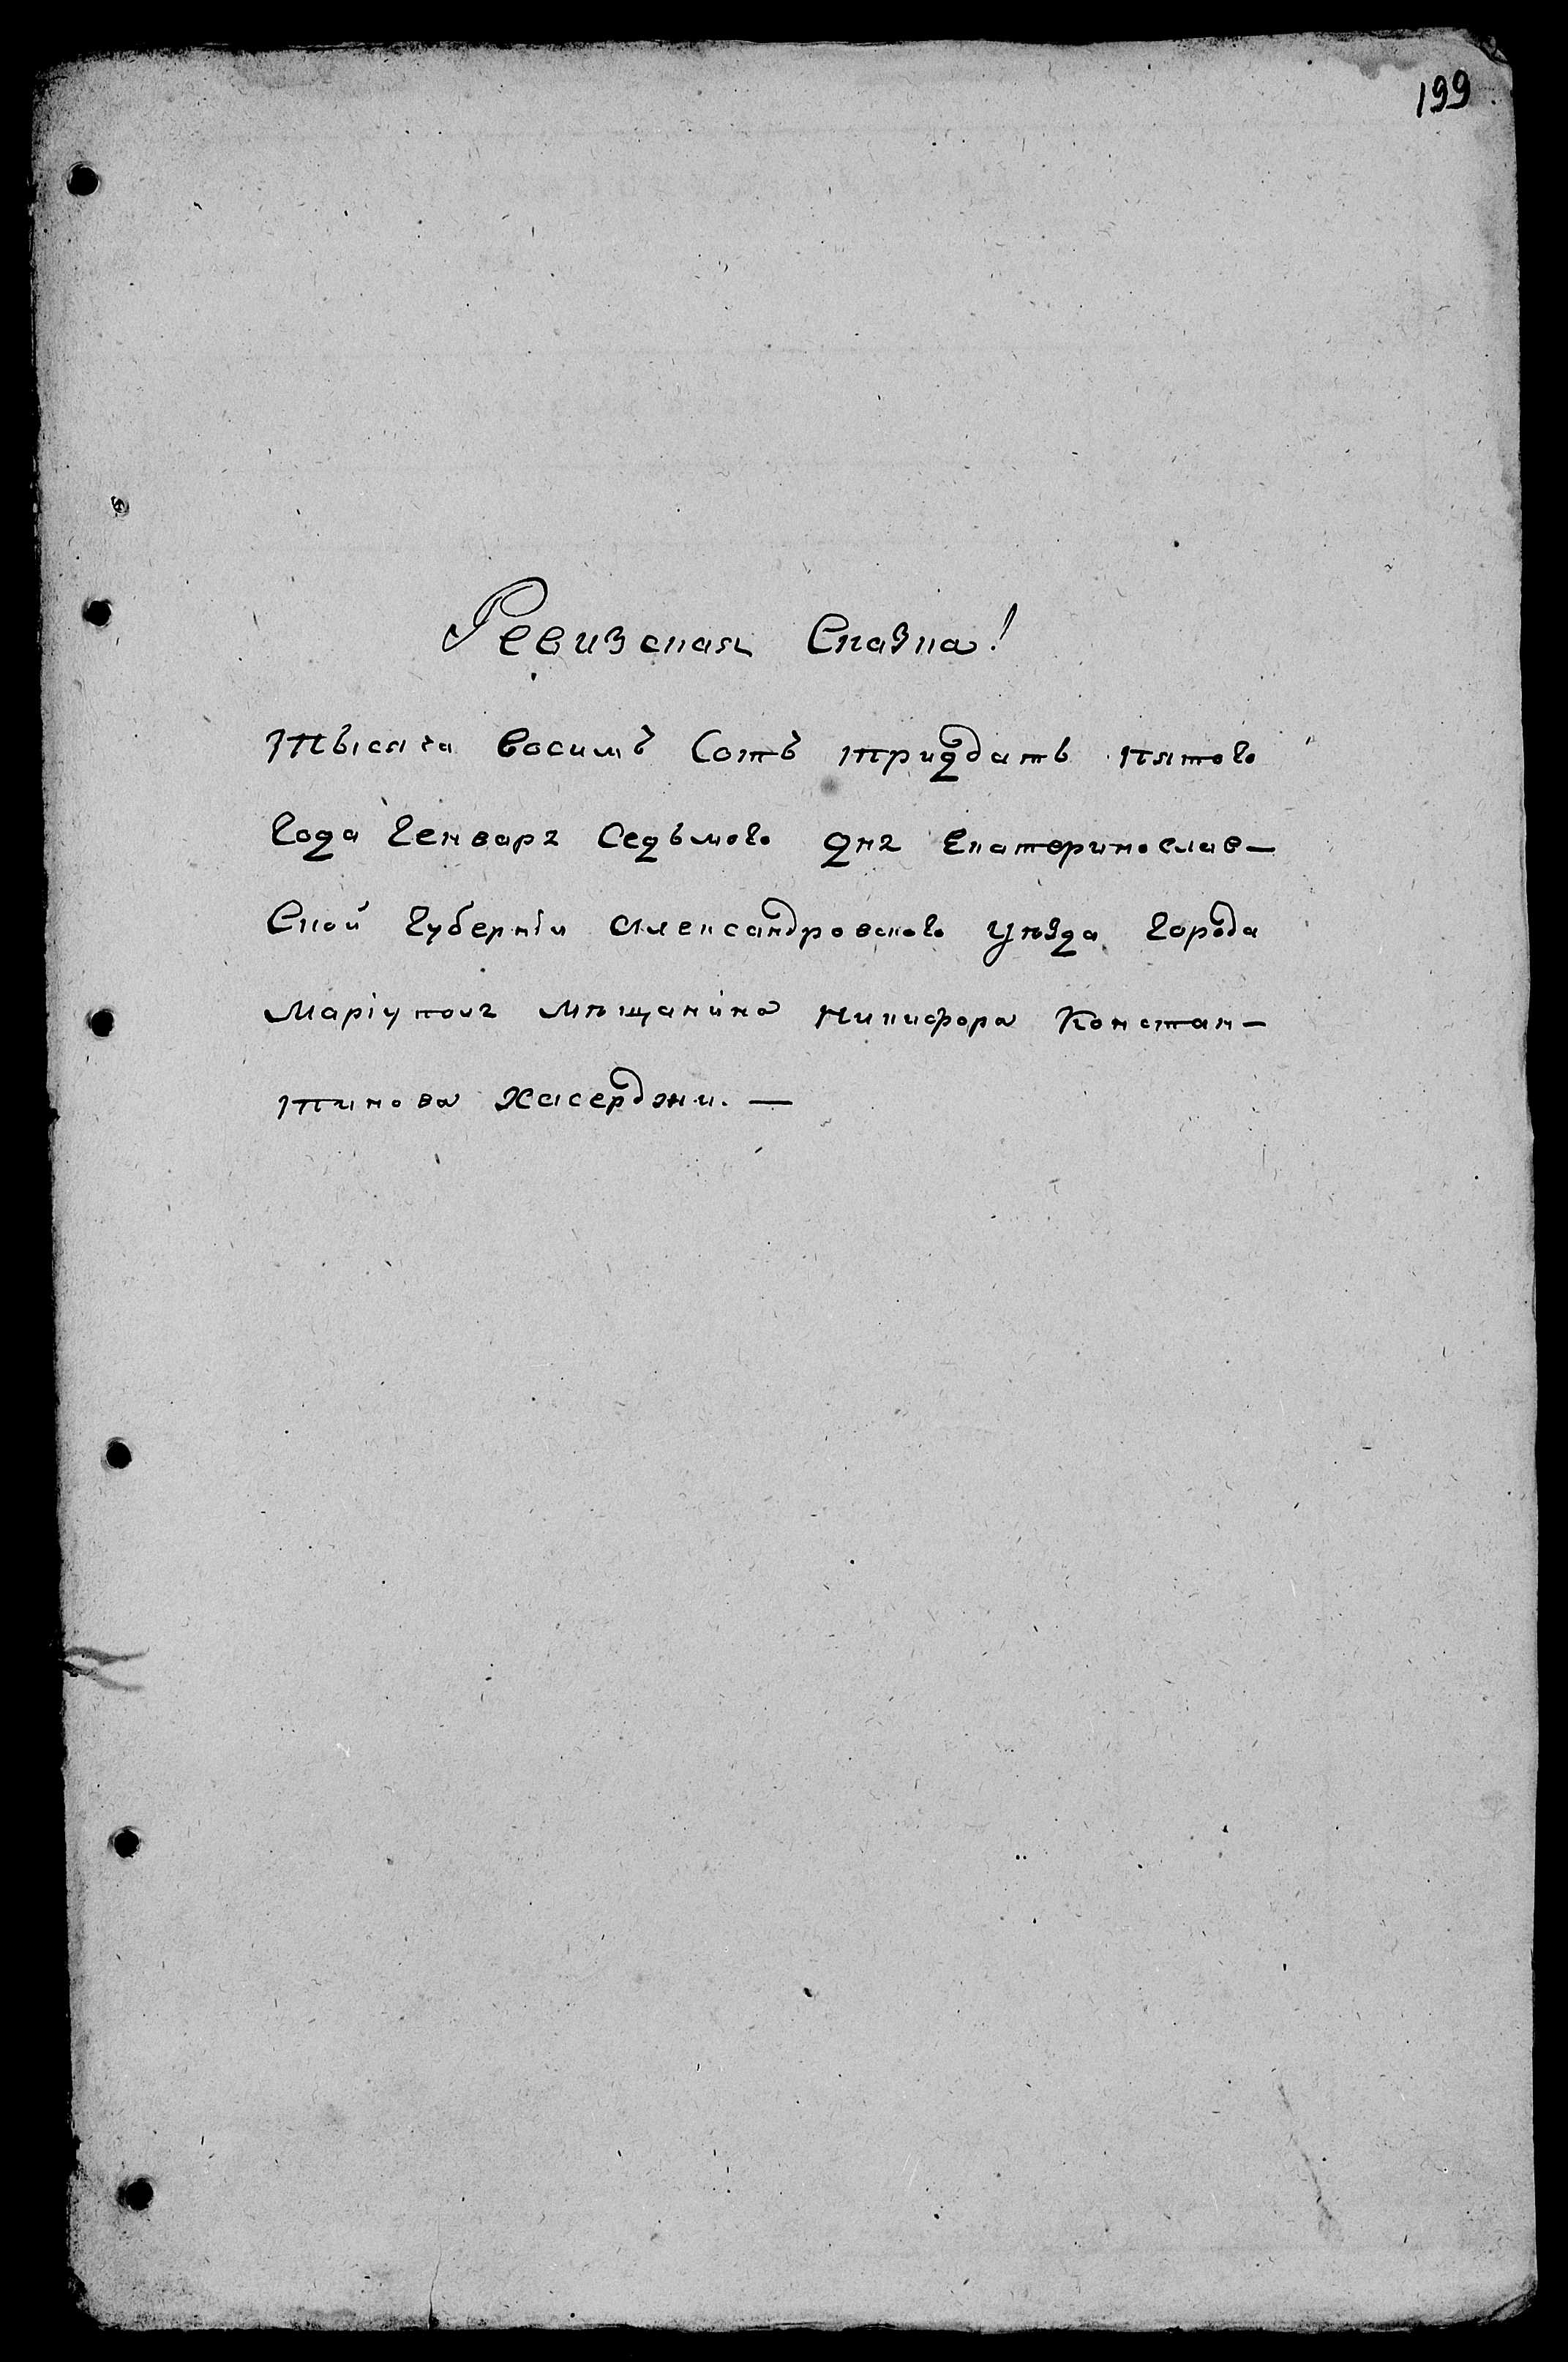 199
Ревизская Сказка!
Тысяча восимъ Сотъ тридцать пятого
Года Генваря Седьмого дня Екатеринослав—
Ской Губерніи Александровского уѣзда Города
Маріуполя мѣщанина Никифора Констан—
тинова Хасерджи. —